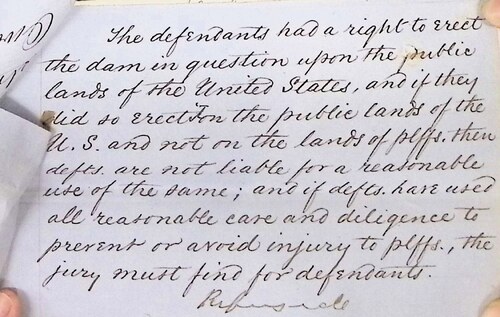 The defendants had a right to erect
the dam in question upon the public
lands of the United States, and if they
did so erect on the public lands of the
U. S. and not on the lands of plffs. then
defts. are not liable for a reasonable
use of the same; and if defts. have used
all reasonable care and diligence to
prevent or avoid injury to plffs., the
jury must find for defendants.